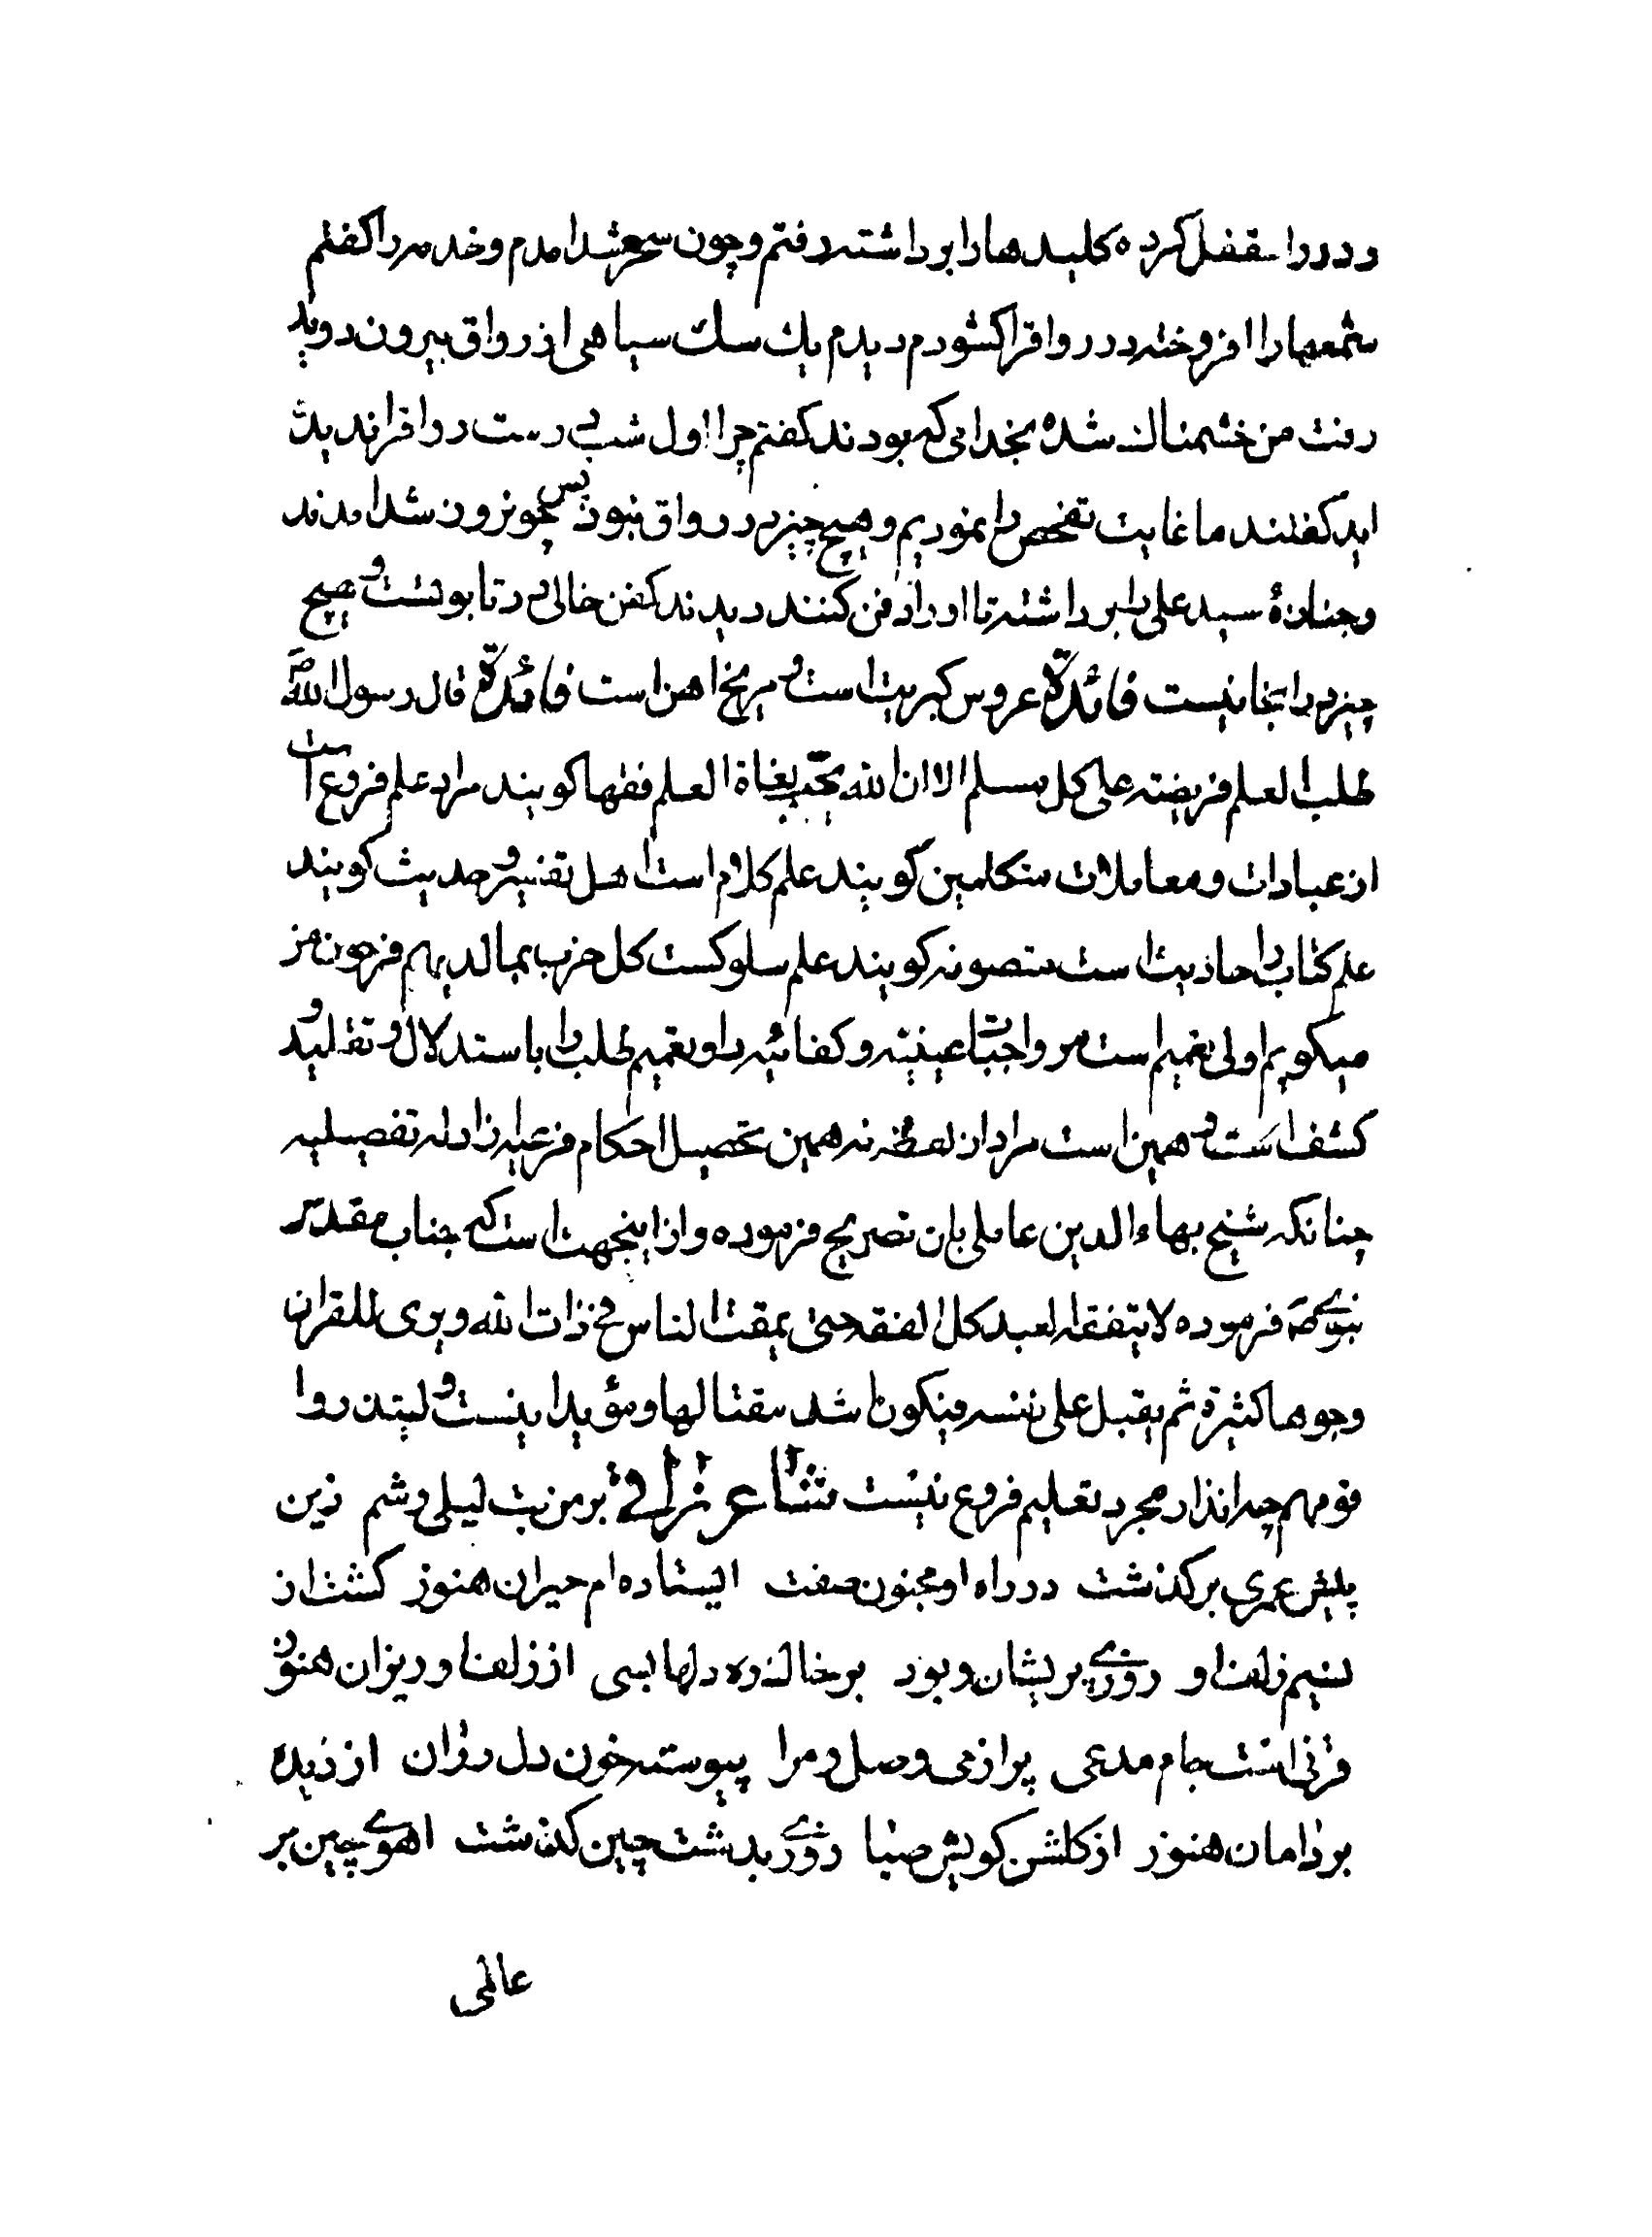 ودر را مقفل کرده کلیدها را برداشته رفتم وچون سحر شد امدم وخدمه را کفتم
شمعها را افروخته در رواقرا کشودم دیدم یك سك سیاهی از رواق بیرون دوید
رفت من خشمناك شده بخدامی که بودند کفتم چرا اول شب درست رواقرا ندیده
اید کفتند ما غایت تفحص را نمودیم وهیچ چیزی در رواق نبود پس چو نروز شد امدند
وجنازهٔ سید علی را برداشته تا او را دفن کنند دیدند کفن خالی در تابوتست و هیچ
چیزی در اینجا نیست فائدة عروس کبریت است و مریخ اهن است فائدة قال رسول الله ص
طلب العلم فریضته علی کل مسلم الا ان الله یحب بغاة العلم فقها کویند مراد علم فروع است
از عبادات ومعاملات متکلمین کویند علم کلام است اهل تفسیر و حدیث کویند
علم کتاب و احادیث است متصوفه کویند علم سلوکست کل حزب بما لدیهم فرحون من
میکویم اولی تعمیم است مر واجبات عینیه وکفائیه را وتعمیم طلب را باستدلال و تقلید و
کشف است و همین است مراد از لفظ فقه نه همین تحصیل احکام فرعیه از ادله تفصیلیه
چنانکه شیخ بهاء الدین عاملی بان تصریح فرموده واز اینجهت است که جناب مقدس
نبوی ص فرموده لا یتفقه العبد کل الفقه حتی یمقت الناس فی ذات الله ویری للقران
وجوها کثیرة ثم یقبل علی نفسه فیکون اشد مقتا لها ومؤید اینست و لینذروا
قومهم چه انذار مجرد تعلیم فروع نیست شاعر نراقی بر من نبت لیلی وشم زین
پیش عمری بر کذشت در راه او مجنون صفت ایستاده ام حیران هنوز کشت از
نسیم زلف او روزی پریشان وبود بر خاك ره دلها بسی از زلف او ریزان هنوز
قرنی است جام مدعی پر از می وصل ومرا پیوسته خون دل روان از دیده
بر دامان هنوز از کلشن کویش صبا روزی بدشت چین کذشت اهوی چین بر
عالمی